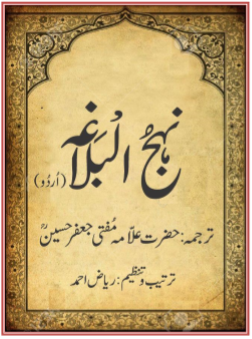 نہجُ الْبَلَاغَہ
(اُردُو)
ترجمہ: حضرت علّامہ مُفتی جعفر حسینؒ
ترتیب و تنظیم: ریاض احمد